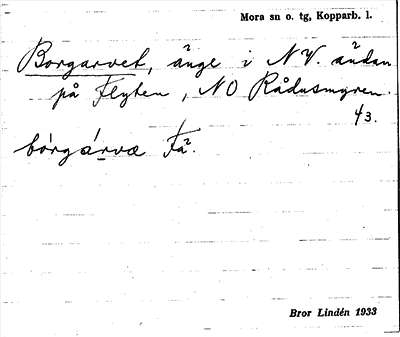 Mora sn o. tg, Kopparb. l.
Borgarvet, änge i N.V. ändan
på Flyten, NO Rådusmyren.
43.
bórgárvæ Få.
Bror Lindén 1933